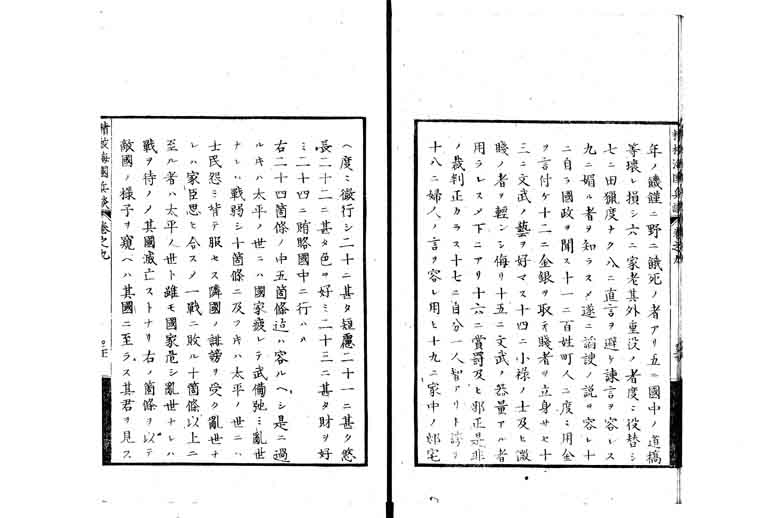 年ノ饑饉ニ野ニ餓死ノ者アリ五ニ國中ノ道橋
等壊レ損シ六ニ家老其外重役ノ者度ミ役替シ
七ニ田獵度ナク八ニ直言ヲ避ケ諫言ヲ容レス
九ニ媚ル者ヲ知ラスメ遂ニ諂諛ノ説ヲ容レ十
ニ自ラ國政ヲ聞ス十一ニ百姓町人ニ度ミ用金
ヲ言付ケ十二ニ金銀ヲ取テ賤者ヲ立身サセ十
三ニ文武ノ藝ヲ好マス十四ニ小禄ノ士及ヒ微
賤ノ者ヲ輕ンシ侮リ十五ニ文武ノ器量アル者
用ラレスメ下ニアリ十六ニ賞罰及ヒ邪正是非
ノ裁判正カラス十七ニ自分一人智アリト誇リ
十八ニ婦人ノ言ヲ容レ用ヒ十九ニ家中ノ邸宅
ヘ度ミ微行シ二十ニ甚タ短慮二十一ニ甚タ悠
長二十二ニ甚タ色ヲ好ミ二十三ニ甚タ財ヲ好
ミ二十四ニ賄賂國中ニ行ハル
右二十四箇條ノ中五箇條迠ハ容ルヘシ是ニ過
ルキハ太平ノ世ニハ國家疲レテ武備弛ミ亂世
ナレハ戰弱シ十箇條ニ及フキハ太平ノ世ニハ
士民怨ミ背テ服セス隣國ノ誹謗ヲ受ク亂世ナ
レハ家臣思ヒ合スメ一戰ニ敗ル十箇條以上ニ
至ル者ハ太平ノ世ト雖モ國家危シ亂世ナレハ
戰ヲ待ノメ其國滅亡ストナリ右ノ箇條ヲ以テ
敵國ノ様子ヲ窺ヘハ其國ニ至ラス其君ヲ見ス
精校海國兵談 卷之九